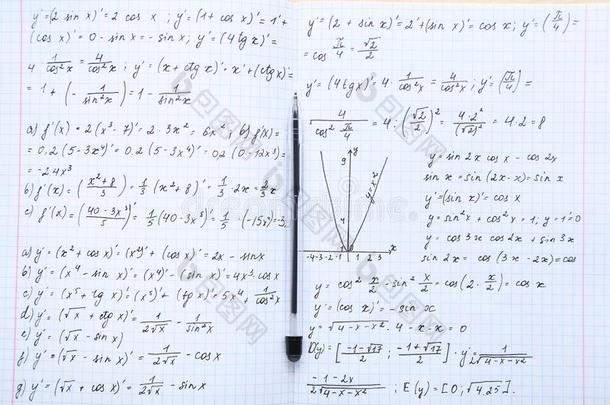 y'=(2 sin x)'=2 cos x ; y'=(1+ cos x)'= 1'+
(cos x)'= 0 - sin x = - sin x; y'=(4 tg x)'=
4 · 1/cos²x = 4/cos²x ; y'=(x + ctg x)'= x'+(ctg x)'=
= 1 + (- 1/sin²x) = 1 - 1/sin²x
a) f'(x) = 2(x³- 7)'= 2 · 3x² = 6x²; b) f'(x) =
= 0,2(5-3x⁴)'= 0,2(5-3x⁴)'= 0,2(0-12x³)=
= -24x³
b) f'(x) = ((x²+8)/3)' = 1/3 (x²+8)' = 1/3 · 2x = 2/3 x
c) f'(x) = ((40-3x³)/5)' = 1/5 (40-3x³)' = 1/5 · (-15x²) = -3
a) y'= (x² + cos x)'= (x²)'+ (cos x)'= 2x - sin x
b) y'= (x⁴ - sin x)'= (x⁴)'- (sin x)'= 4x³- cos x
c) y'= (x⁵ + tg x)'= (x⁵)'+ (tg x)'= 5x⁴ + 1/cos²x
d) y'= (√x + ctg x)'= 1/(2√x) - 1/sin²x
e) y'= (√x - sin x)
f) y'= (√x - sin x)'= 1/(2√x) - cos x
g) y'= (√x + cos x)'= 1/(2√x) - sin x
y'= (2 + sin x)'= 2'+(sin x)'= cos x; y'= (π/4) =
= cos π/4 = √2/2
y'= (4 tg x)'= 4 · 1/cos²x = 4/cos²x ; y'= (π/4) =
4/cos² π/4 = 4 : (√2/2)² = 4·2²/(√2)² = 4 · 2 = 8
y
9
y=x²
x
-4 -3 -2 -1 0 1 2 3
y = sin 2x cos x - cos 2x
sin x = sin (2x - x) = sin x
y'= (sin x)'= cos x
y = sin²x + cos²x = 1, y'= 1'= 0
y = cos 3x cos 2x + sin 3x
sin 2x = cos (3x - 2x) = cos
y = cos² x/2 - sin² x/2 = cos (2 · x/2) = cos x
y'= (cos x)'= - sin x
y = √(4-x-x²) · 4 - x - x = 0
D(y) = [(-1-√17)/2 ; (-1+√17)/2] · y'= 1/(2√(4-x-x²))
(-1-2x)/(2√(4-x-x²)) ; E(y) = [0; √4,25].